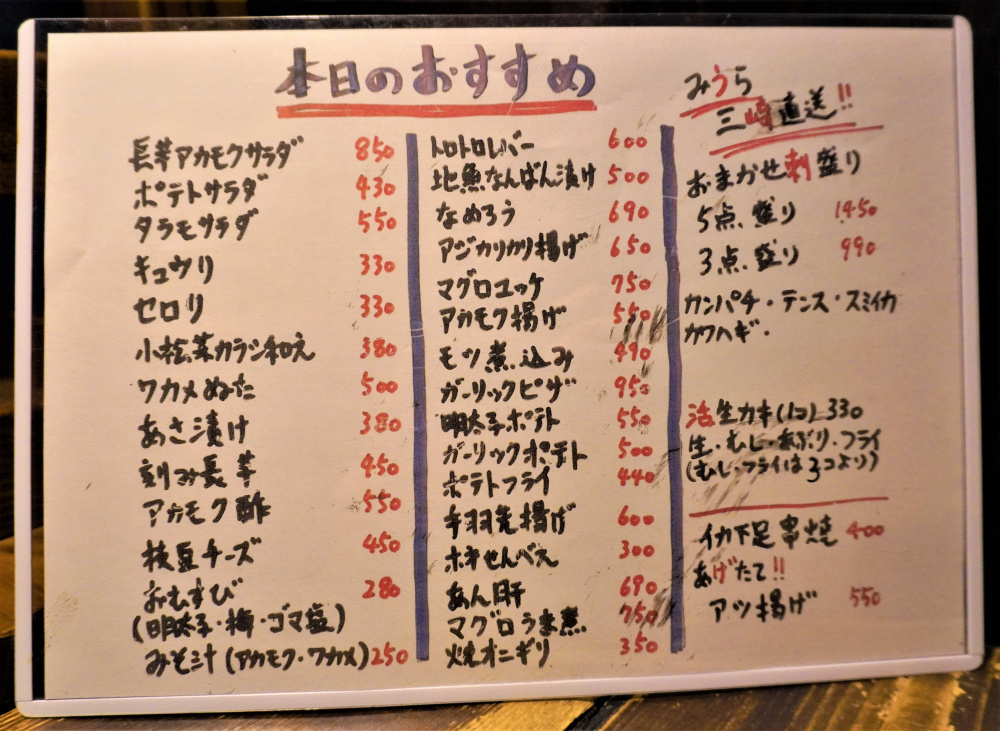 本日のおすすめ
長芋アカモクサラダ 850
ポテトサラダ 430
タラモサラダ 550
キュウリ 330
セロリ 330
小松菜カラシ和え 380
ワカメぬた 500
あさ漬け 380
刻み長芋 450
アカモク酢 550
枝豆チーズ 450
おむすび 280
(明太子・梅・ゴマ塩)
みそ汁(アカモク・ワカメ) 250
トロトロレバー 600
地魚なんばん漬け 500
なめろう 690
アジカリカリ揚げ 650
マグロユッケ 750
アカモク揚げ 550
モツ煮込み 490
ガーリックピザ 950
明太子ポテト 550
ガーリックポテト 500
ポテトフライ 440
手羽先揚げ 600
ホネせんべえ 300
あん肝 690
マグロうま煮 750
焼オニギリ 350
みうら
三崎直送!!
おまかせ刺盛り
5点盛り 1450
3点盛り 990
カンパチ・テンス・スミイカ
カワハギ・
活生カキ(1コ) 330
生・むし・あぶり・フライ
(むし・フライは3コより)
イカ下足串焼 400
あげたて!!
アツ揚げ 550